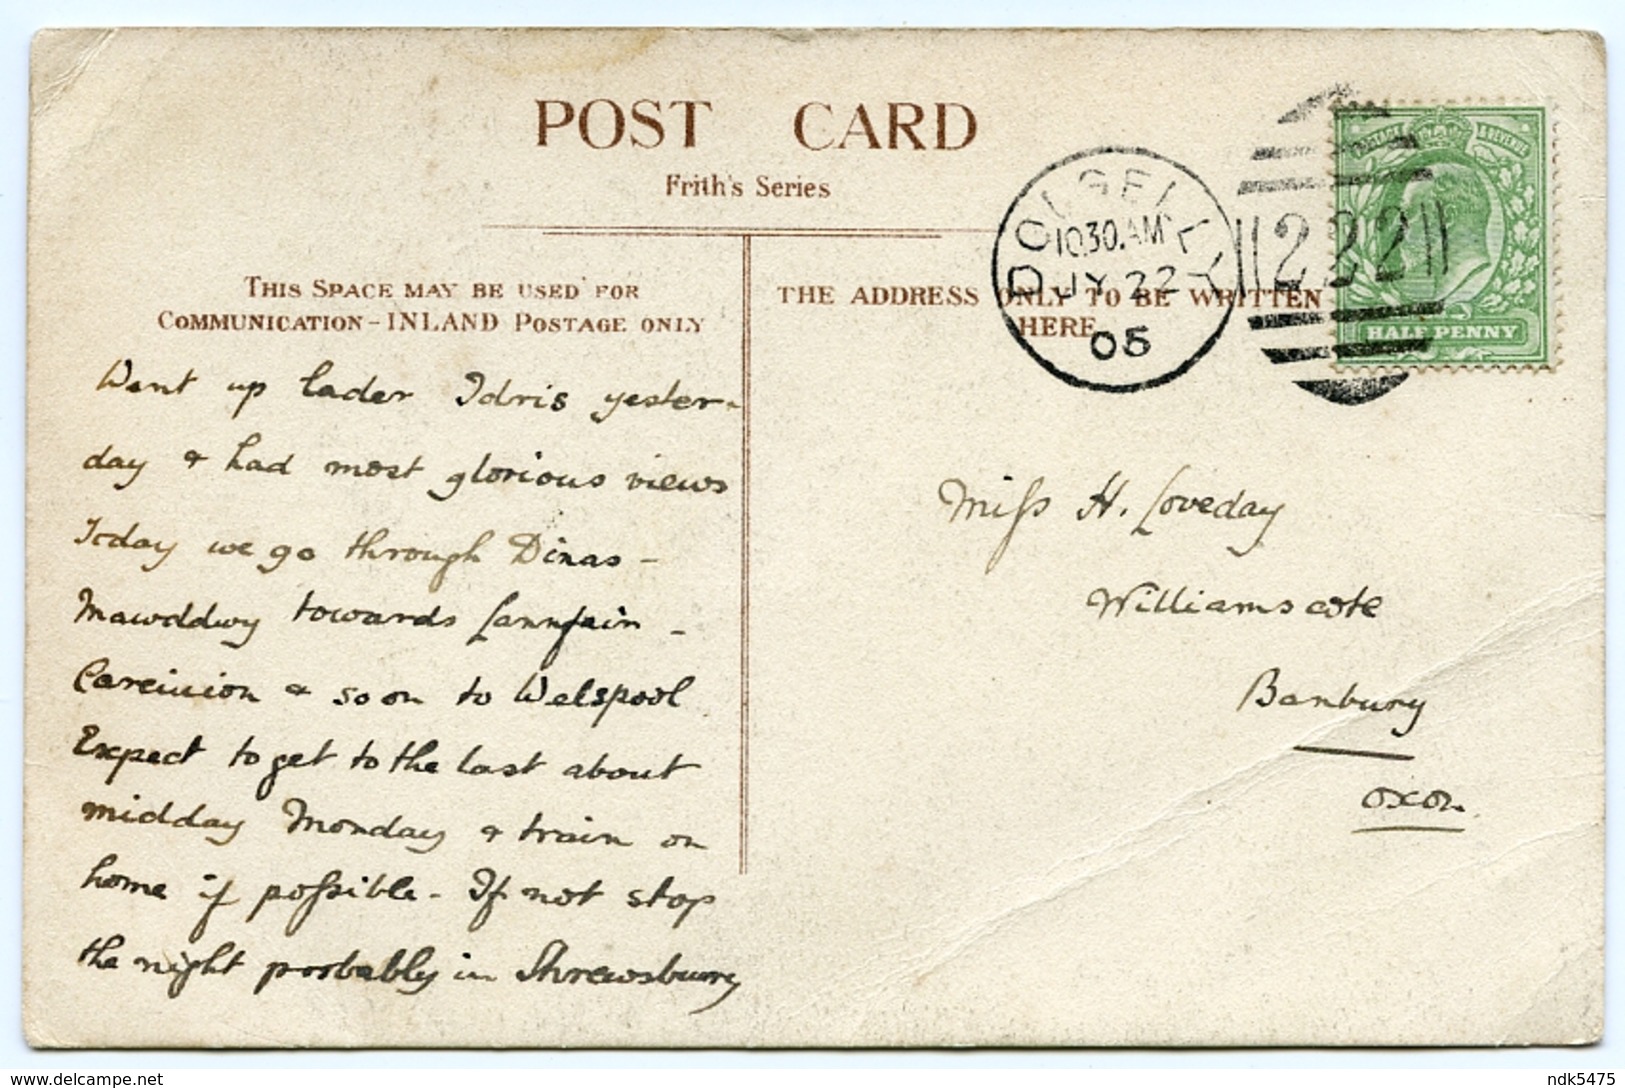 POST CARD
Frith's Series
THIS SPACE MAY BE USED FOR
COMMUNICATION - INLAND POSTAGE ONLY
Went up lader Idris yester-
day & had most glorious views
Today we go through Dinas -
Mawddwy towards Lannfair -
Careinion & so on to Welspool
Expect to get to the last about
midday Monday & train on
home if possible - If not stop
the night probably in Shrewsbury
THE ADDRESS ONLY TO BE WRITTEN
HERE
DOLGELLY
10.30.AM
JY 22
05
222
POSTAGE & REVENUE
HALF PENNY
Miss H. Loveday
Williamscote
Banbury
Oxon.
www.delcampe.net
ndk5475